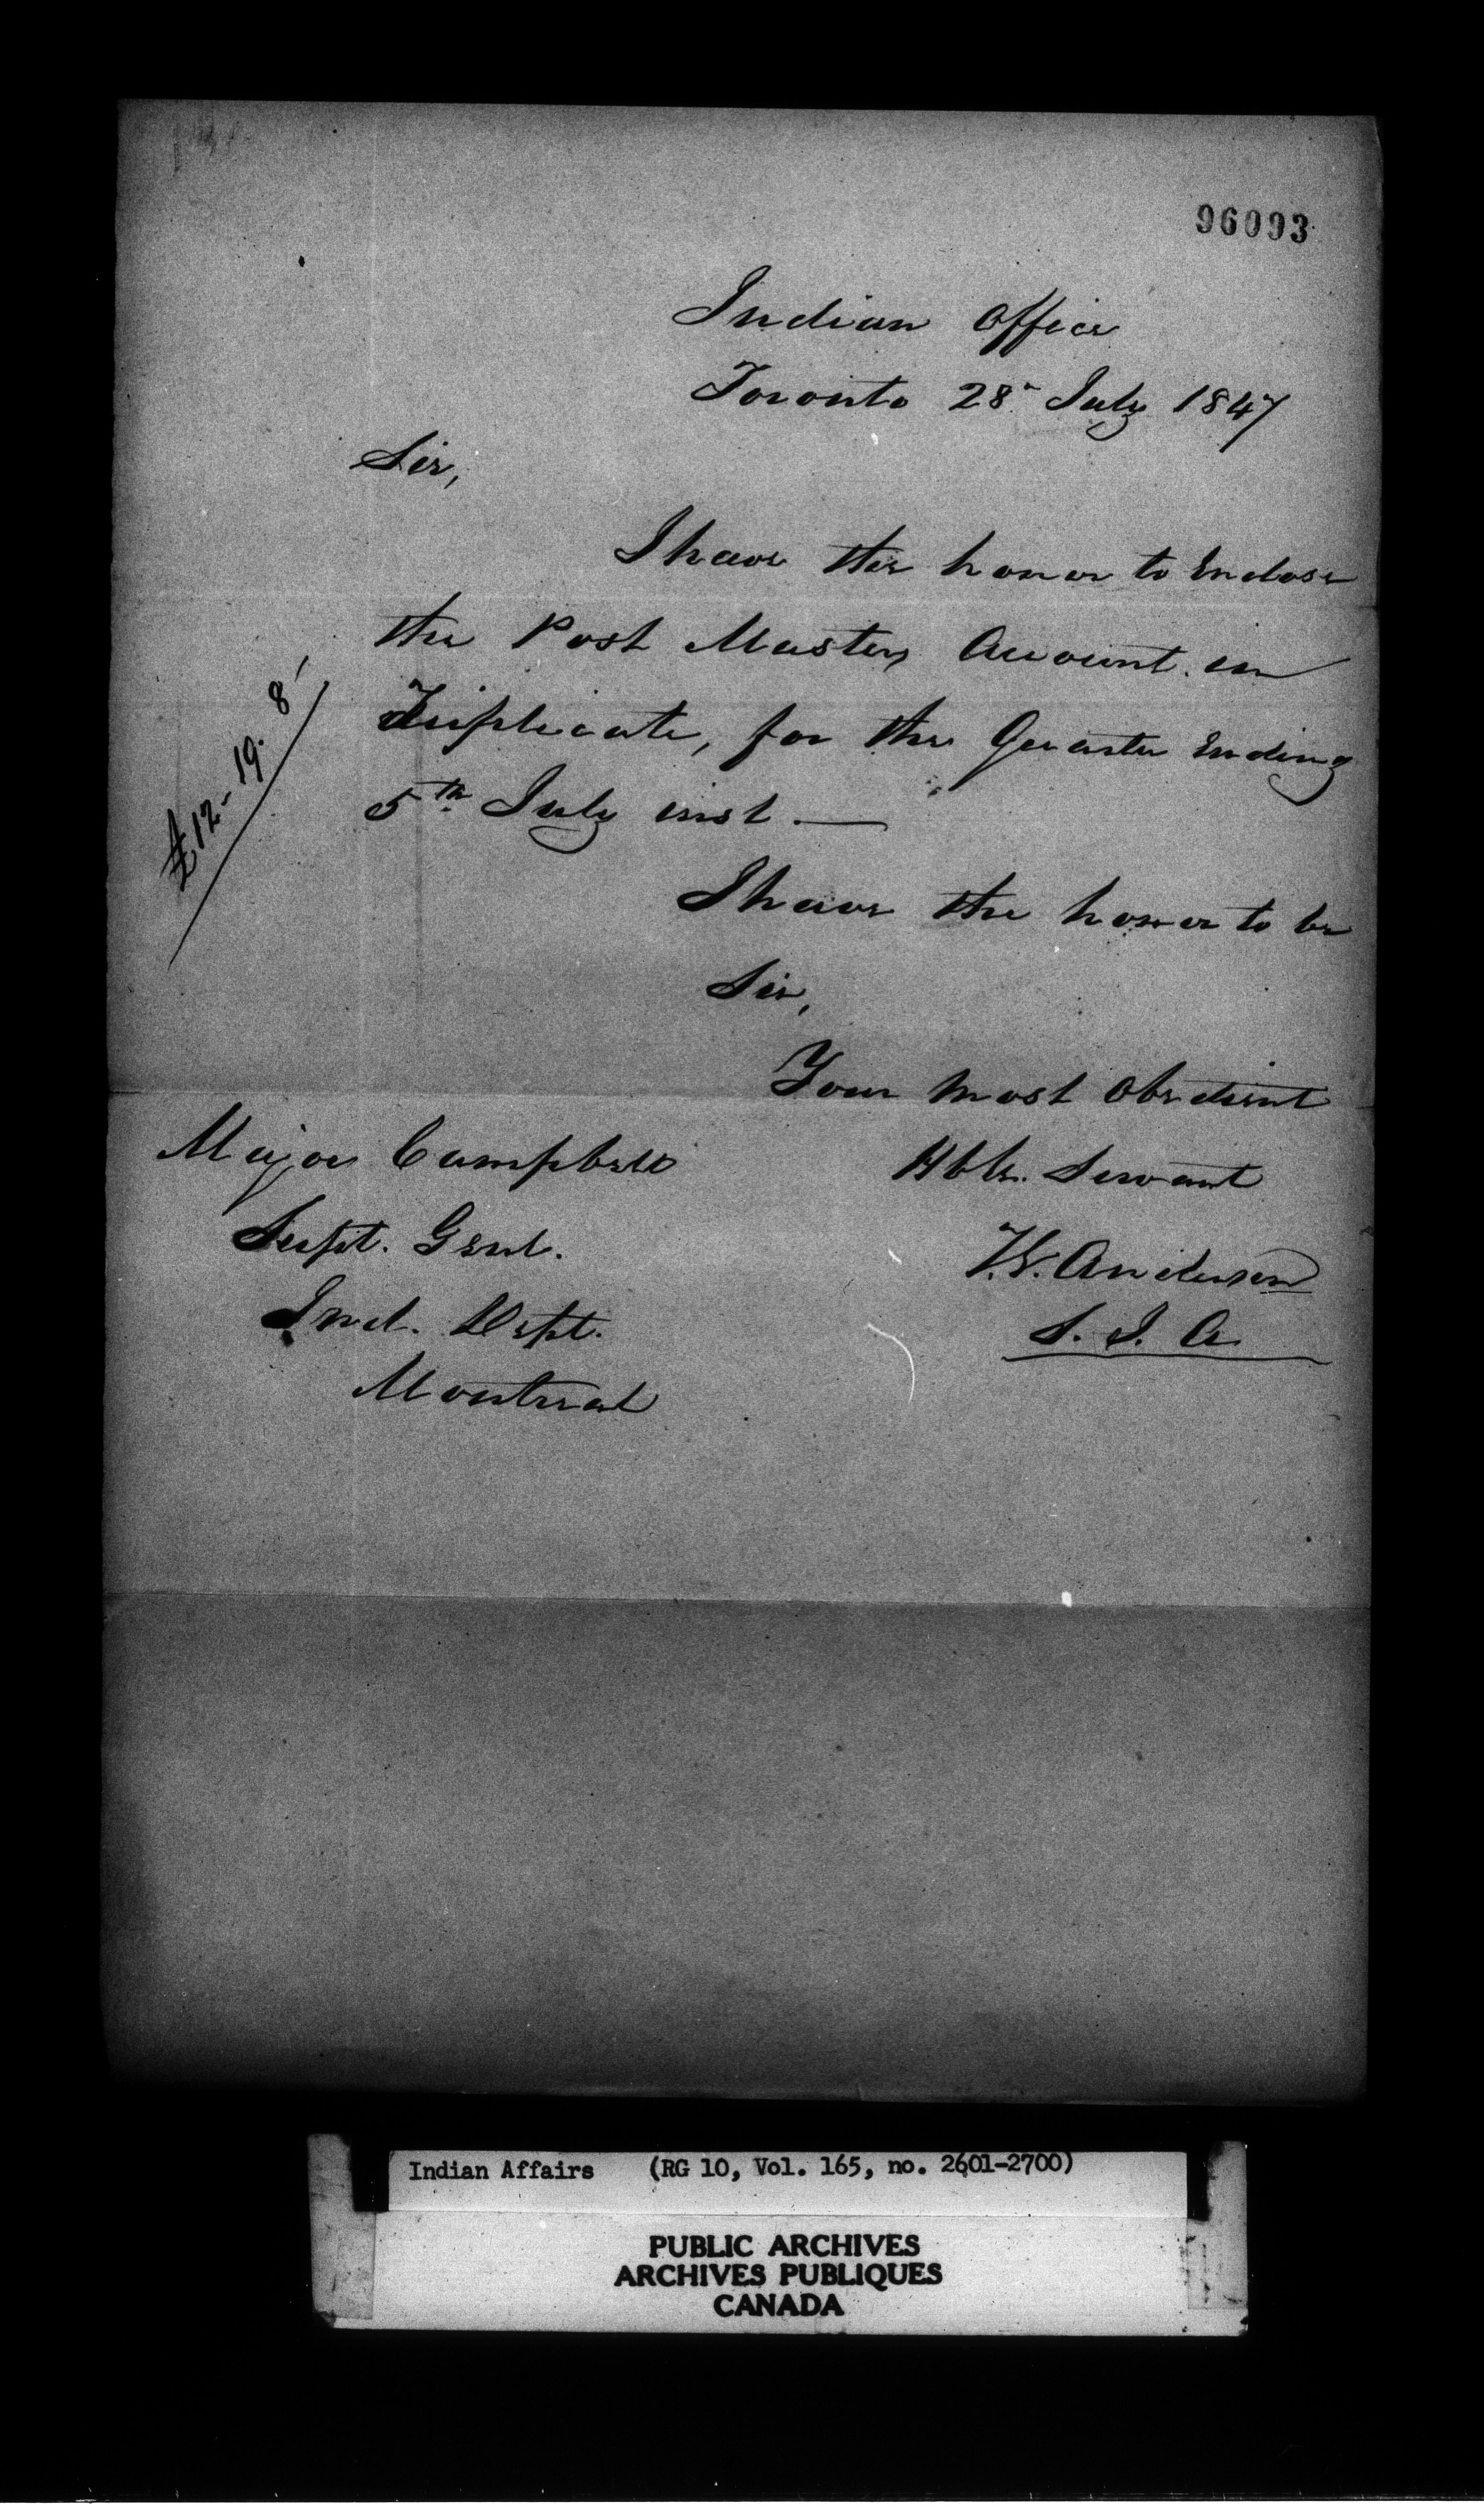 96093
Indian Office
Toronto 28" July 1847
Sir,
I have the honor to Enclose
the Post Masters Account in
Triplicate, for the Quarter Ending
5th July inst. —
£12-19. 8
I have the honor to be
Sir,
Your most Obedient
Hble. Servant
T.G. Anderson
S. I. A
Major Campbell
Supt. Genl.
Ind. Dept.
Montreal
Indian Affairs (RG 10, Vol. 165, no. 2601-2700)
PUBLIC ARCHIVES
ARCHIVES PUBLIQUES
CANADA